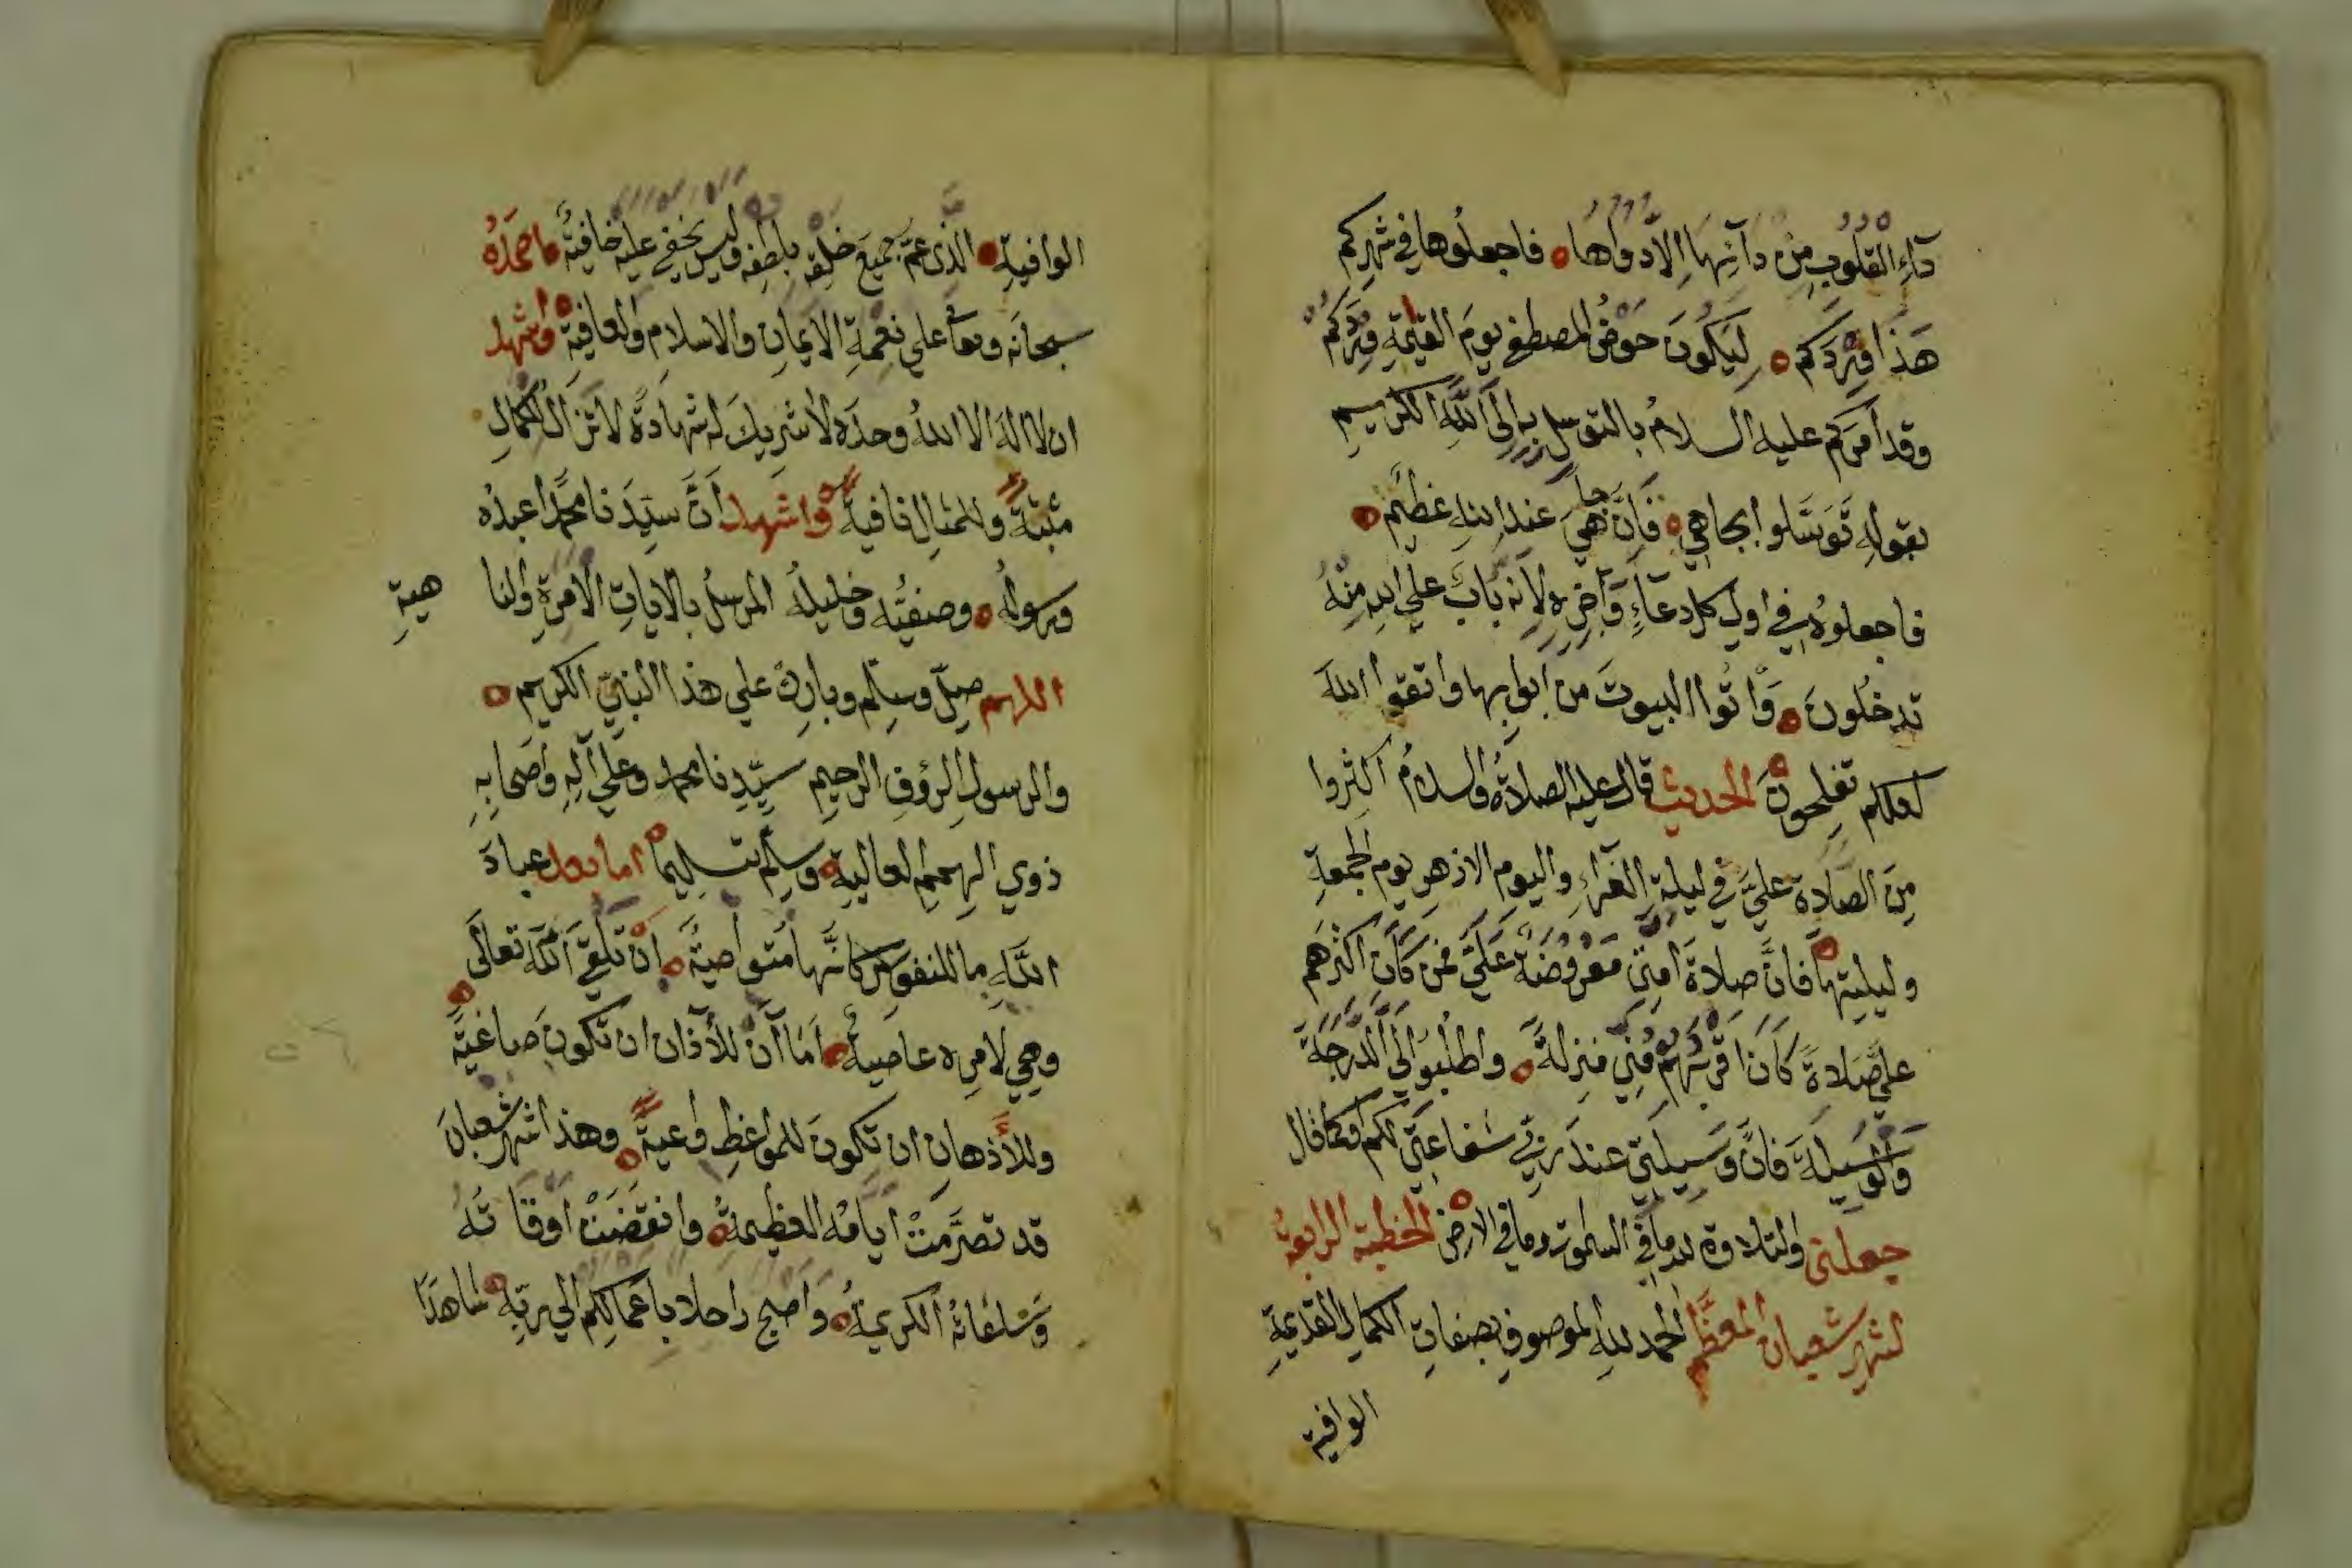 دآءِ القُلُوبِ مِنْ دآئِهَا اِلاَّ دواها فاجعلُوها في شهرِكم
هَذَا وِرْدَكم لِيَكُونَ حَوْضُ المصطفى يومَ القيٰمةِ وِرْدَكُمْ
وقد اَمَرَكم عليه السلامُ بالتوسل به اِلى اللَّهِ الكريم
بقولِهِ تَوَسَّلوا بجاهي فَاِنَّ جاهِيَ عند الله عَظيم
فاجعلوهُ في اول كل دعآءٍ وَآخره لاَنه بَابَ على الله مِنْهُ
تدخُلونَ وَأْتُوا البيوتَ من ابوابها واتقوا اللهَ
لعلكم تفلحونَ الحديث قال عليه الصلاةُ والسلامُ اكثِروا
مِنَ الصَّلاةِ عليَّ في ليلةِ الغَرآءِ واليومِ الازهرِ يوم الجمعةِ
وليلتِها فَاِنَّ صلاةَ امتي مَعْرُوضَةٌ عَلَيَّ فمن كَانَ اكثرَهم
عليَّ صَلاةً كَانَ اقربَهُم مِنِّي منزلةً واطلبُوا لي الدَّرَجَةَ
وَالْوَسيلةَ فانَّ وَسيلَتي عندَ ربي شفاعَتي لكم اوكما قال
جعلني والتلاوة لله ما في السموت وما في الارض الخطبة الرابعةُ
لشهرِ شعبان المعظَّم الحمد للهِ الموصوفِ بصفاتِ الكمال القديمةِ
الوافية
الوافيةِ الذَّى عَمَّ جميعَ خلقِهِ بلُطفِه وليس يخفى عليه خافيةٌ احمَدُهُ
سبحانَه وتعا على نِعْمةِ الايمانِ والاسلامِ والعافيةِ واشهد
ان لا اله الا اللهُ وحدَه لا شريكَ له شهادةً لا تزال للكمالِ
مثبتةً وللمثالِ نافيةً واشهد اَنَّ سيِّدَنا محمَّدًا عبدُه
ورسولُه وصفيُّه وخليلُه المرسلُ بالاياتِ الامرةِ والنا
هيةِ
اللهم صلِّ وسلِّم وباركْ على هذا النبيّ الكريم
والرسولِ الرؤفِ الرحيمِ سيِّدِنا محمد وعلى آلِهِ واصحابِهِ
ذوي الهممِ العاليةِ وسلّم تسليماً اما بعد عبادَ
اللَّهِ ما للنفوس كانَّها مُتواصيةٌ اَنْ تَلْقَى اللهَ تعالَى
وهي لامره عاصيةٌ اَمَا آنَ للأذان ان تكونَ صاغيَةً
وللأذهان ان تكونَ للمواعظِ واعيةً وهذا شهرُ شعبانَ
قد تصرَّمَتْ ايامُه العظيمةُ وانقضَتْ اوقاتُهُ
وَسَاعَاتُه الكريمةُ وَاصبح راحلا باعمالِكم الى ربِّه شاهدًا